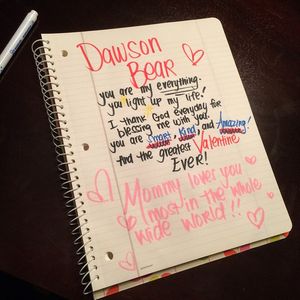 Dawson
Bear
you are my everything.
you light up my life!
I thank God everyday for
blessing me with you.
you are Smart, Kind, and Amazing!
And the greatest Valentine
EVER!
Mommy loves you
most in the whole
wide world!!